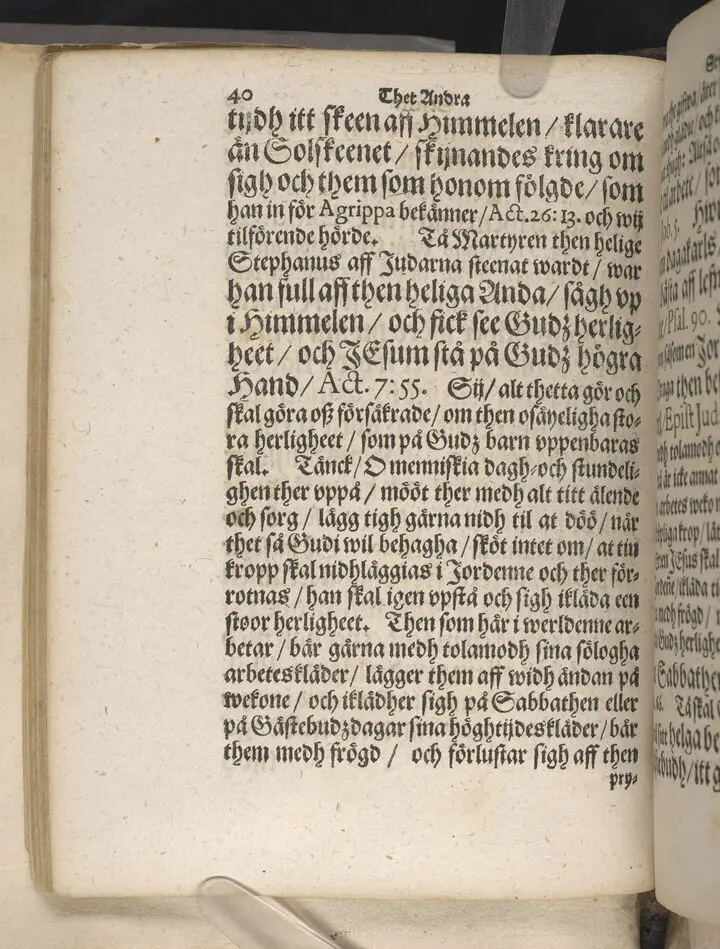 40 Thet Andra
tijdh itt skeen aff Himmelen / klarare
än Solskeenet / skijnandes kring om
sigh och them som honom fölgde / som
han in för Agrippa bekänner / Act. 26: 13. och wij
tilförende hörde. Tå Martyren then helige
Stephanus aff Judarna steenat wardt / war
han full aff then heliga Anda / sågh vp
i Himmelen / och fick see Gudz herlig-
heet / och JEsum stå på Gudz högra
Hand / Act. 7: 55. Sij / alt thetta gör och
skal göra oß försäkrade / om then osäyeligha sto-
ra herligheet / som på Gudz barn vppenbaras
skal. Tänck / O menniskia dagh- och stundeli-
ghen ther vppå / mööt ther medh alt titt älende
och sorg / lägg tigh gärna nidh til at döö / när
thet så Gudi wil behagha / sköt intet om / at tin
kropp skal nidhläggias i Jordenne och ther för-
rotnas / han skal igen vpstå och sigh ikläda een
stoor herligheet. Then som här i werldenne ar-
betar / bär gärna medh tolamodh sina sölogha
arbeteskläder / lägger them aff widh ändan på
wekone / och iklädher sigh på Sabbathen eller
på Gästebudzdagar sina höghtijdeskläder / bär
them medh frögd / och förlustar sigh aff then
pry-